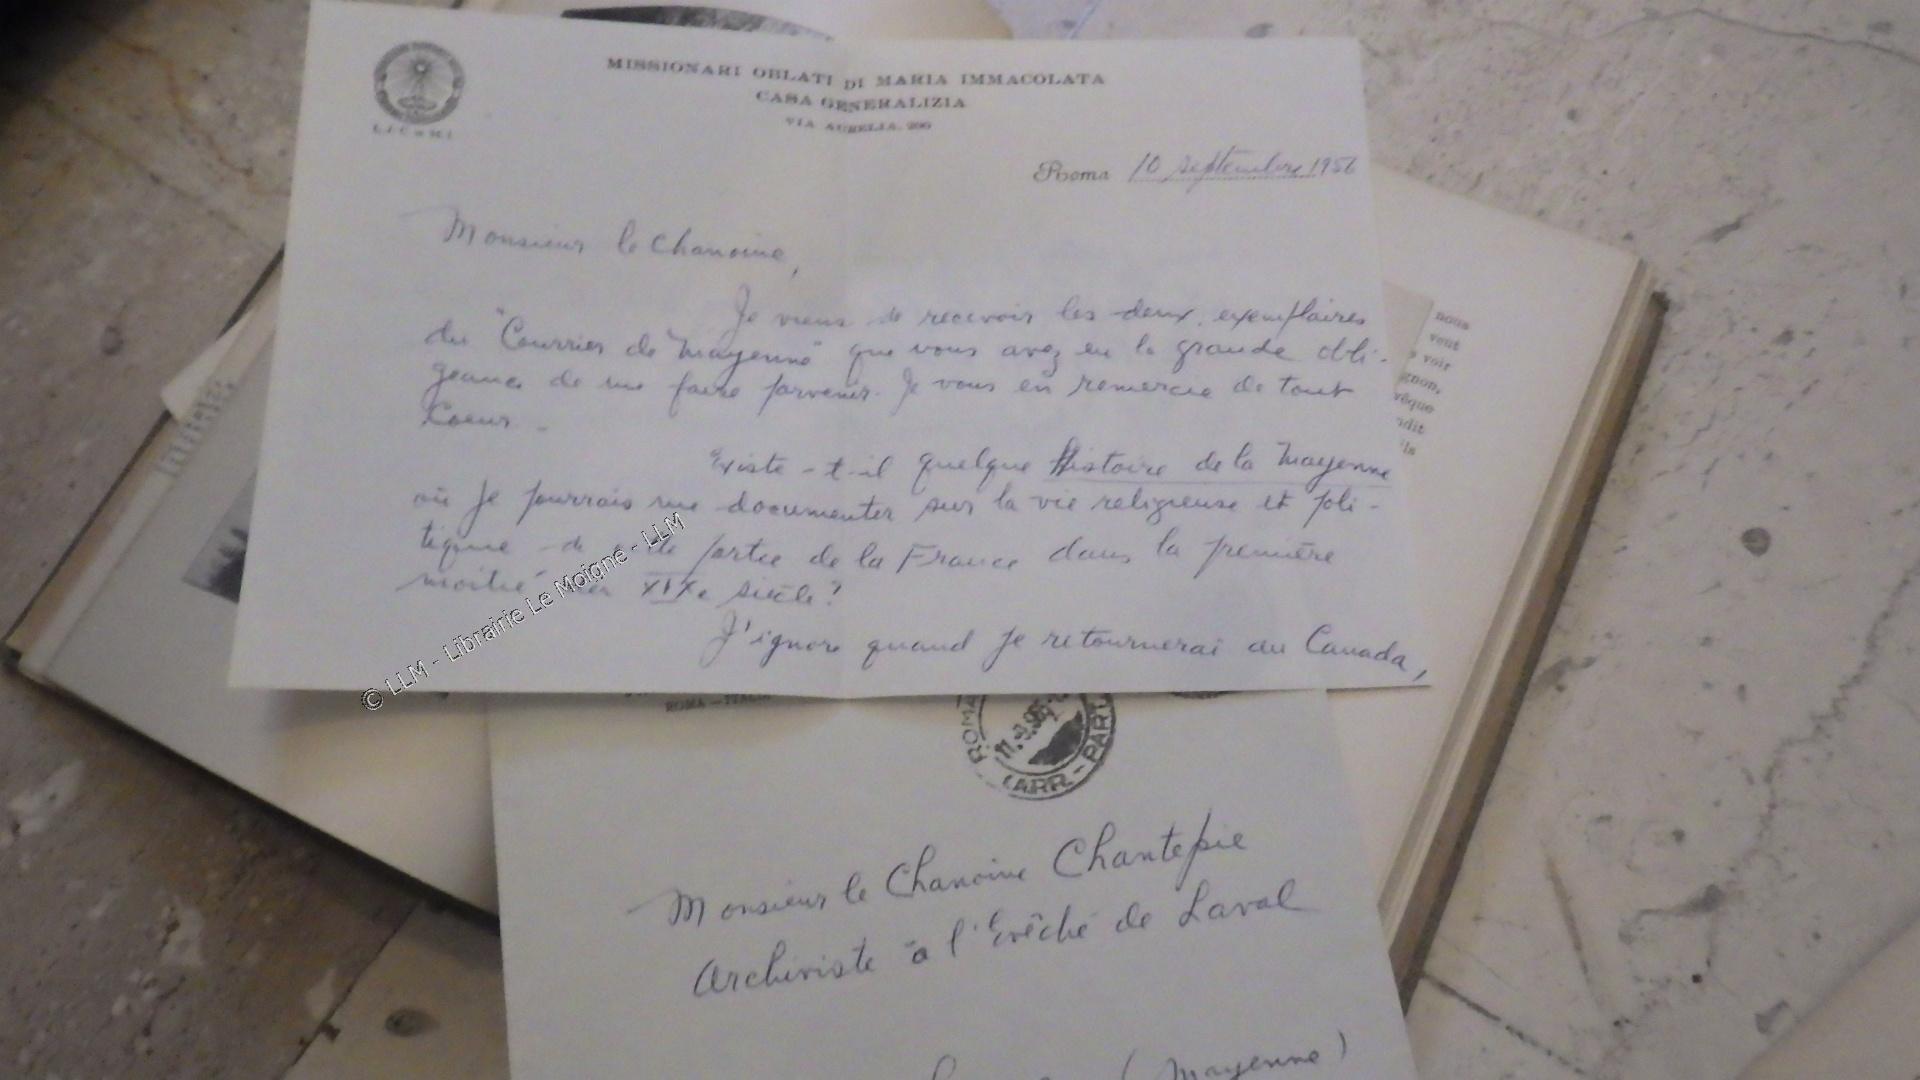 MISSIONARI OBLATI DI MARIA IMMACOLATA
CASA GENERALIZIA
VIA AURELIA, 290
L.J.C. et M.I.
Roma 10 septembre 1956
Monsieur le Chanoine,
Je viens de recevoir les deux exemplaires
du "Courrier de Mayenne" que vous avez eu la grande obli-
geance de me faire parvenir. Je vous en remercie de tout
Coeur.
Existe-t-il quelque Histoire de la Mayenne
où je pourrais me documenter sur la vie religieuse et poli-
tique de cette partie de la France dans la première
moitié du XIXe siècle?
J'ignore quand je retournerai au Canada,
© LLM - Librairie Le Moigne - LLM
nous
veut
voir
gnon,
vêque
ndit
ils
ROMA - ITALIA
ROMA
11.9.56
(ARR. - PART
Monsieur le Chanoine Chantepie
Archiviste à l'Evêché de Laval
(Mayenne)